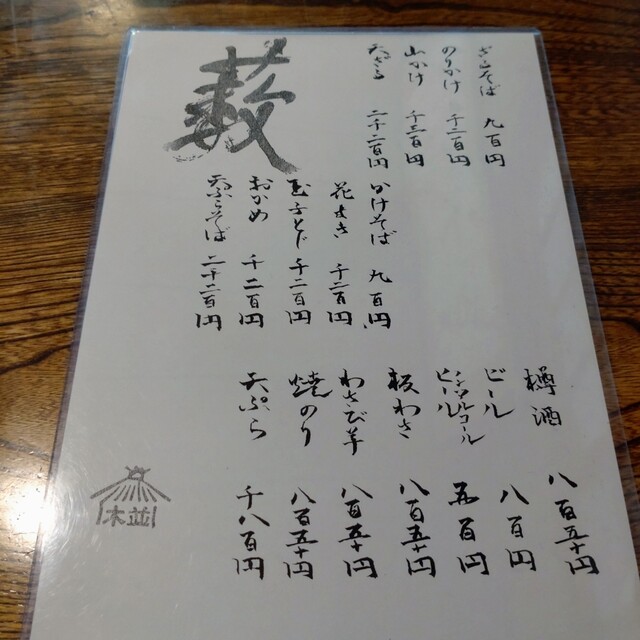 ざるそば 九百円
のりかけ 千二百円
山かけ 千三百円
天ざる 二千二百円
藪
かけそば 九百円
花まき 千二百円
玉子とじ 千二百円
おかめ 千二百円
天ぷらそば 二千二百円
樽酒 八百五十円
ビール 八百円
ノンアルコールビール 五百円
板わき 八百五十円
わさび芋 八百五十円
焼のり 八百五十円
天ぷら 千八百円
木並